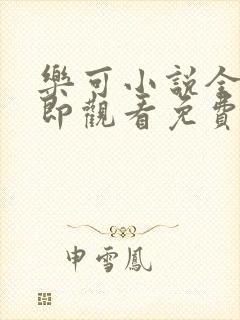 樂可小說全
即觀看免費
申雪鳳